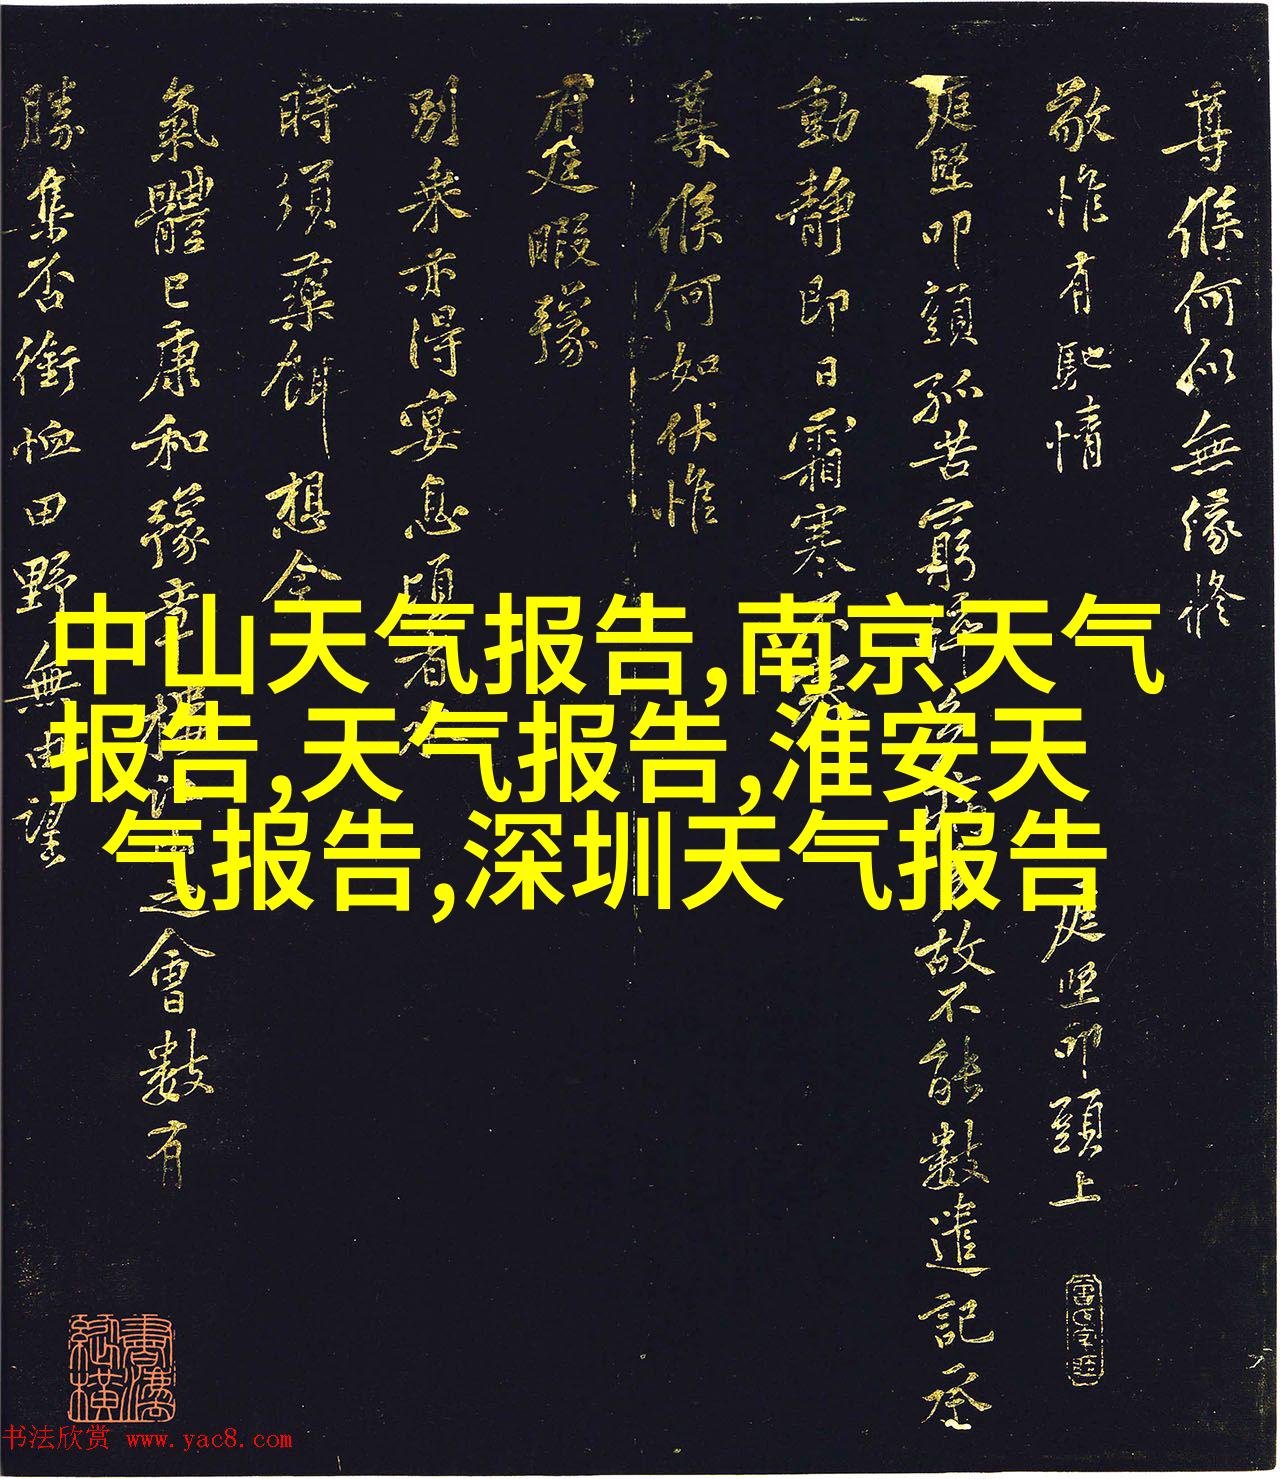 尊候何似無緣修
敬惟有馳情
庭堅叩頭上
庭堅叩頭孤苦窮
故不能數遣記承
動静即日霜寒不
尊候何如伏惟
府庭暇豫
別乗亦得宴息頃者
時須藥餌想今
氣體已康和豫章
之會數有
勝集否銜恤田野無由望
中山天气报告,南京天气
报告,天气报告,淮安天
气报告,深圳天气报告
书法欣赏 www.yac8.com